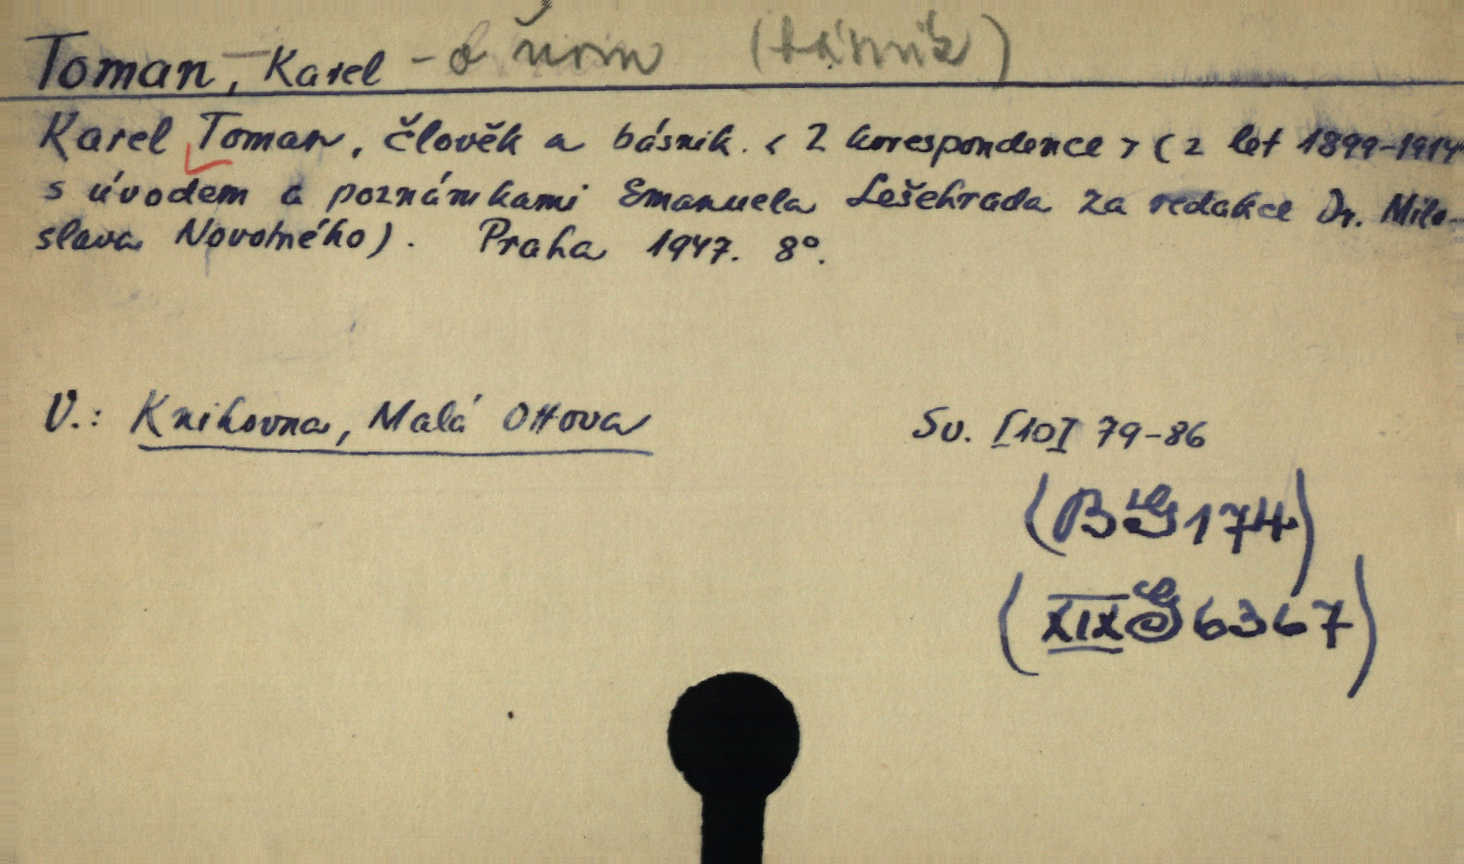 Toman, Karel - o něm (básník)
Karel Toman, člověk a básník. < Z korespondence > (z let 1899-1914
s úvodem a poznámkami Emanuela Lešehrada za redakce Dr. Milo-
slava Novotného). Praha 1947. 8°.
V.: Knihovna, Malá Ottova Sv. [10] 79-86
(BG174)
(XIXG6367)